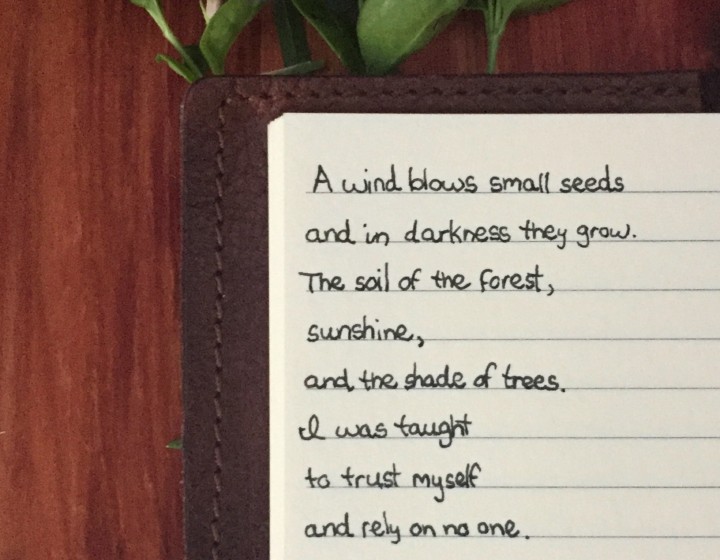 A wind blows small seeds
and in darkness they grow.
The soil of the forest,
sunshine,
and the shade of trees.
I was taught
to trust myself
and rely on no one.